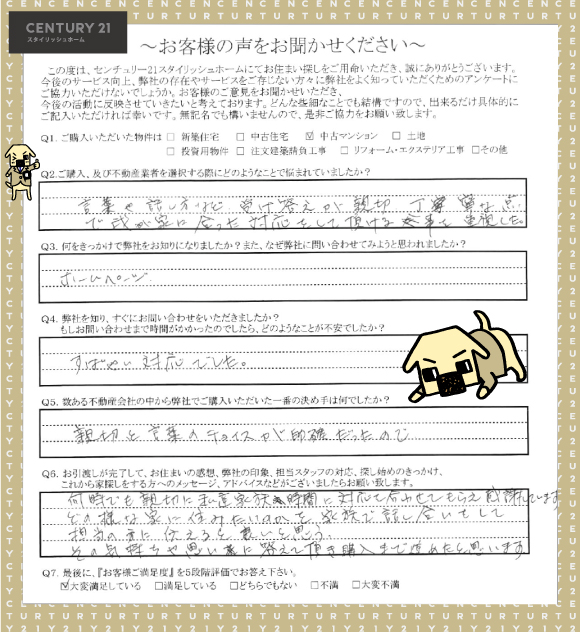 CENTURY 21
スタイリッシュホーム
～お客様の声をお聞かせください～
この度は、センチュリー21スタイリッシュホームにてお住まい探しをご用命いただき、誠にありがとうございます。
今後のサービス向上、弊社の存在やサービスをご存じない方々に弊社をよく知っていただくためのアンケートに
ご協力いただけないでしょうか。お客様のご意見をお聞かせいただき、
今後の活動に反映させていきたいと考えております。どんな些細なことでも結構ですので、出来るだけ具体的に
ご記入いただければ幸いです。無記名でも構いませんので、是非ご協力をお願い致します。
Q1. ご購入いただいた物件は □ 新築住宅 □ 中古住宅 ☑ 中古マンション □ 土地
□ 投資用物件 □ 注文建築請負工事 □ リフォーム・エクステリア工事 □その他
Q2.ご購入、及び不動産業者を選択する際にどのようなことで悩まれていましたか?
言葉や話し方など 受け答えが親切 丁寧 な点
で我が家に合った対応をして頂ける事を重視した。
Q3. 何をきっかけで弊社をお知りになりましたか?また、なぜ弊社に問い合わせてみようと思われましたか?
ホームページ
Q4. 弊社を知り、すぐにお問い合わせをいただきましたか?
もしお問い合わせまで時間がかかったのでしたら、どのようなことが不安でしたか?
すばやい対応でした。
Q5. 数ある不動産会社の中から弊社でご購入いただいた一番の決め手は何でしたか?
親切と言葉のチョイスが的確だったので
Q6. お引渡しが完了して、お住まいの感想、弊社の印象、担当スタッフの対応、探し始めのきっかけ、
これから家探しをする方へのメッセージ、アドバイスなどがございましたらお願い致します。
何時でも親切に私達家族の時間に対応を合わせてもらえ感謝しています
どの様な家に住みたいのかを、家族で話し合いをして
担当の方に伝えると良いと思う。
その気持ちや思い に答えて頂き購入まで進めたと思います
Q7. 最後に、『お客様ご満足度』を5段階評価でお答え下さい。
☑大変満足している □満足している □どちらでもない □不満 □大変不満